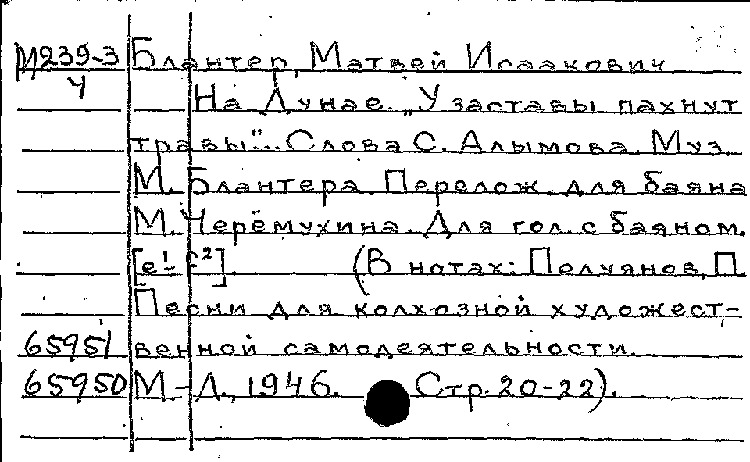 М239-3 Блантер, Матвей Исаакович
У На Дунае. „У заставы пахнут
травы"... Слова С. Алымова. Муз.
М. Блантера. Перелож. для баяна
М. Черёмухина. Для гол. с баяном.
[e¹-f²]. (В нотах: Полуянов, П.
Песни для колхозной художест-
65951 венной самодеятельности.
65950 М.-Л., 1946. Стр. 20-22).